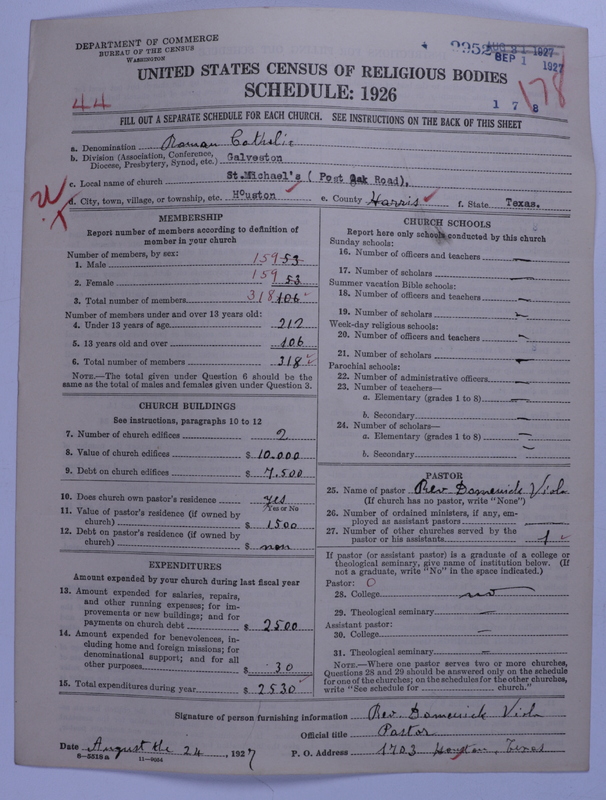 DEPARTMENT OF COMMERCE
BUREAU OF THE CENSUS
WASHINGTON
AUG 31 1927
SEP 1 1927
UNITED STATES CENSUS OF RELIGIOUS BODIES
SCHEDULE: 1926
44
178
1 7 8
FILL OUT A SEPARATE SCHEDULE FOR EACH CHURCH. SEE INSTRUCTIONS ON THE BACK OF THIS SHEET
a. Denomination Roman Catholic
b. Division (Association, Conference, Diocese, Presbytery, Synod, etc.) Galveston
c. Local name of church St.Michael's ( Post Oak Road),
d. City, town, village, or township, etc. Houston e. County Harris f. State Texas.
MEMBERSHIP
Report number of members according to definition of
member in your church
Number of members, by sex:
1. Male 159 53
2. Female 159 53
3. Total number of members 318 106
Number of members under and over 13 years old:
4. Under 13 years of age 212
5. 13 years old and over 106
6. Total number of members 318
NOTE.—The total given under Question 6 should be the
same as the total of males and females given under Question 3.
CHURCH BUILDINGS
See instructions, paragraphs 10 to 12
7. Number of church edifices 2
8. Value of church edifices $ 10.000
9. Debt on church edifices $ 7.500
10. Does church own pastor's residence yes
Yes or No
11. Value of pastor's residence (if owned by
church) $ 1500
12. Debt on pastor's residence (if owned by
church) $ non
EXPENDITURES
Amount expended by church during last fiscal year
13. Amount expended for salaries, repairs,
and other running expenses; for im-
provements or new buildings; and for
payments on church debt $ 2500
14. Amount expended for benevolences, in-
cluding home and foreign missions; for
denominational support; and for all
other purposes $ 30
15. Total expenditures during year $ 2530
CHURCH SCHOOLS
Report here only schools conducted by this church
Sunday schools:
16. Number of officers and teachers —
17. Number of scholars —
Summer vacation Bible schools:
18. Number of officers and teachers —
19. Number of scholars —
Week-day religious schools:
20. Number of officers and teachers —
21. Number of scholars —
Parochial schools:
22. Number of administrative officers —
23. Number of teachers—
a. Elementary (grades 1 to 8) —
b. Secondary —
24. Number of scholars—
a. Elementary (grades 1 to 8) —
b. Secondary —
PASTOR
25. Name of pastor Rev. Domenick Viola
(If church has no pastor, write "None")
26. Number of ordained ministers, if any, em-
ployed as assistant pastors —
27. Number of other churches served by the
pastor or his assistants 1
If pastor (or assistant pastor) is a graduate of a college or
theological seminary, give name of institution below. (If
not a graduate, write "No" in the space indicated.)
Pastor: 0
28. College no
29. Theological seminary —
Assistant pastor:
30. College —
31. Theological seminary —
NOTE.—Where one pastor serves two or more churches,
Questions 28 and 29 should be answered only on the schedule
for one of the churches; on the schedules for the other churches,
write "See schedule for church."
Signature of person furnishing information Rev. Domenick Viola
Official title Pastor
Date August the 24, 1927 P. O. Address 1703 Houston, Texas
6—5518 a 11—9054